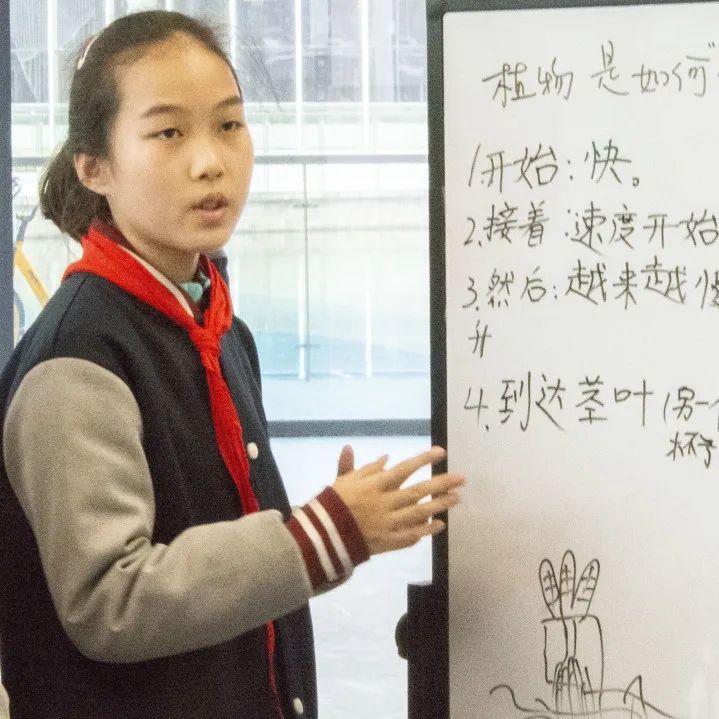 植物是如何
1.开始:快。
2.接着:速度开始
3.然后:越来越慢
升
4.到达茎叶(另一个
杯子